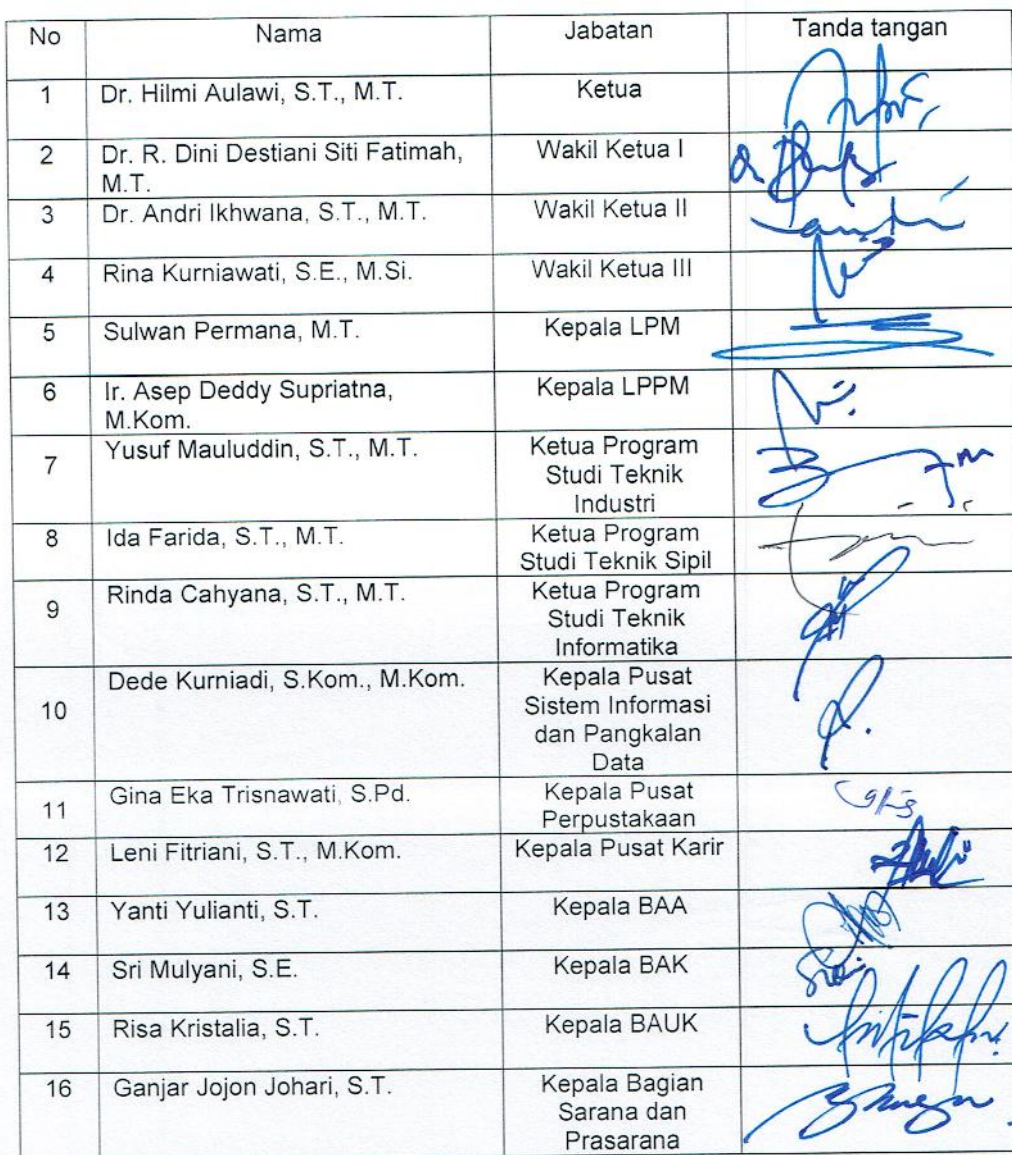 No Nama Jabatan Tanda tangan
1 Dr. Hilmi Aulawi, S.T., M.T. Ketua
2 Dr. R. Dini Destiani Siti Fatimah, Wakil Ketua I
M.T.
3 Dr. Andri Ikhwana, S.T., M.T. Wakil Ketua II
4 Rina Kurniawati, S.E., M.Si. Wakil Ketua III
5 Sulwan Permana, M.T. Kepala LPM
6 Ir. Asep Deddy Supriatna, Kepala LPPM
M.Kom.
7 Yusuf Mauluddin, S.T., M.T. Ketua Program
Studi Teknik
Industri
8 Ida Farida, S.T., M.T. Ketua Program
Studi Teknik Sipil
9 Rinda Cahyana, S.T., M.T. Ketua Program
Studi Teknik
Informatika
10 Dede Kurniadi, S.Kom., M.Kom. Kepala Pusat
Sistem Informasi
dan Pangkalan
Data
11 Gina Eka Trisnawati, S.Pd. Kepala Pusat
Perpustakaan
12 Leni Fitriani, S.T., M.Kom. Kepala Pusat Karir
13 Yanti Yulianti, S.T. Kepala BAA
14 Sri Mulyani, S.E. Kepala BAK
15 Risa Kristalia, S.T. Kepala BAUK
16 Ganjar Jojon Johari, S.T. Kepala Bagian
Sarana dan
Prasarana